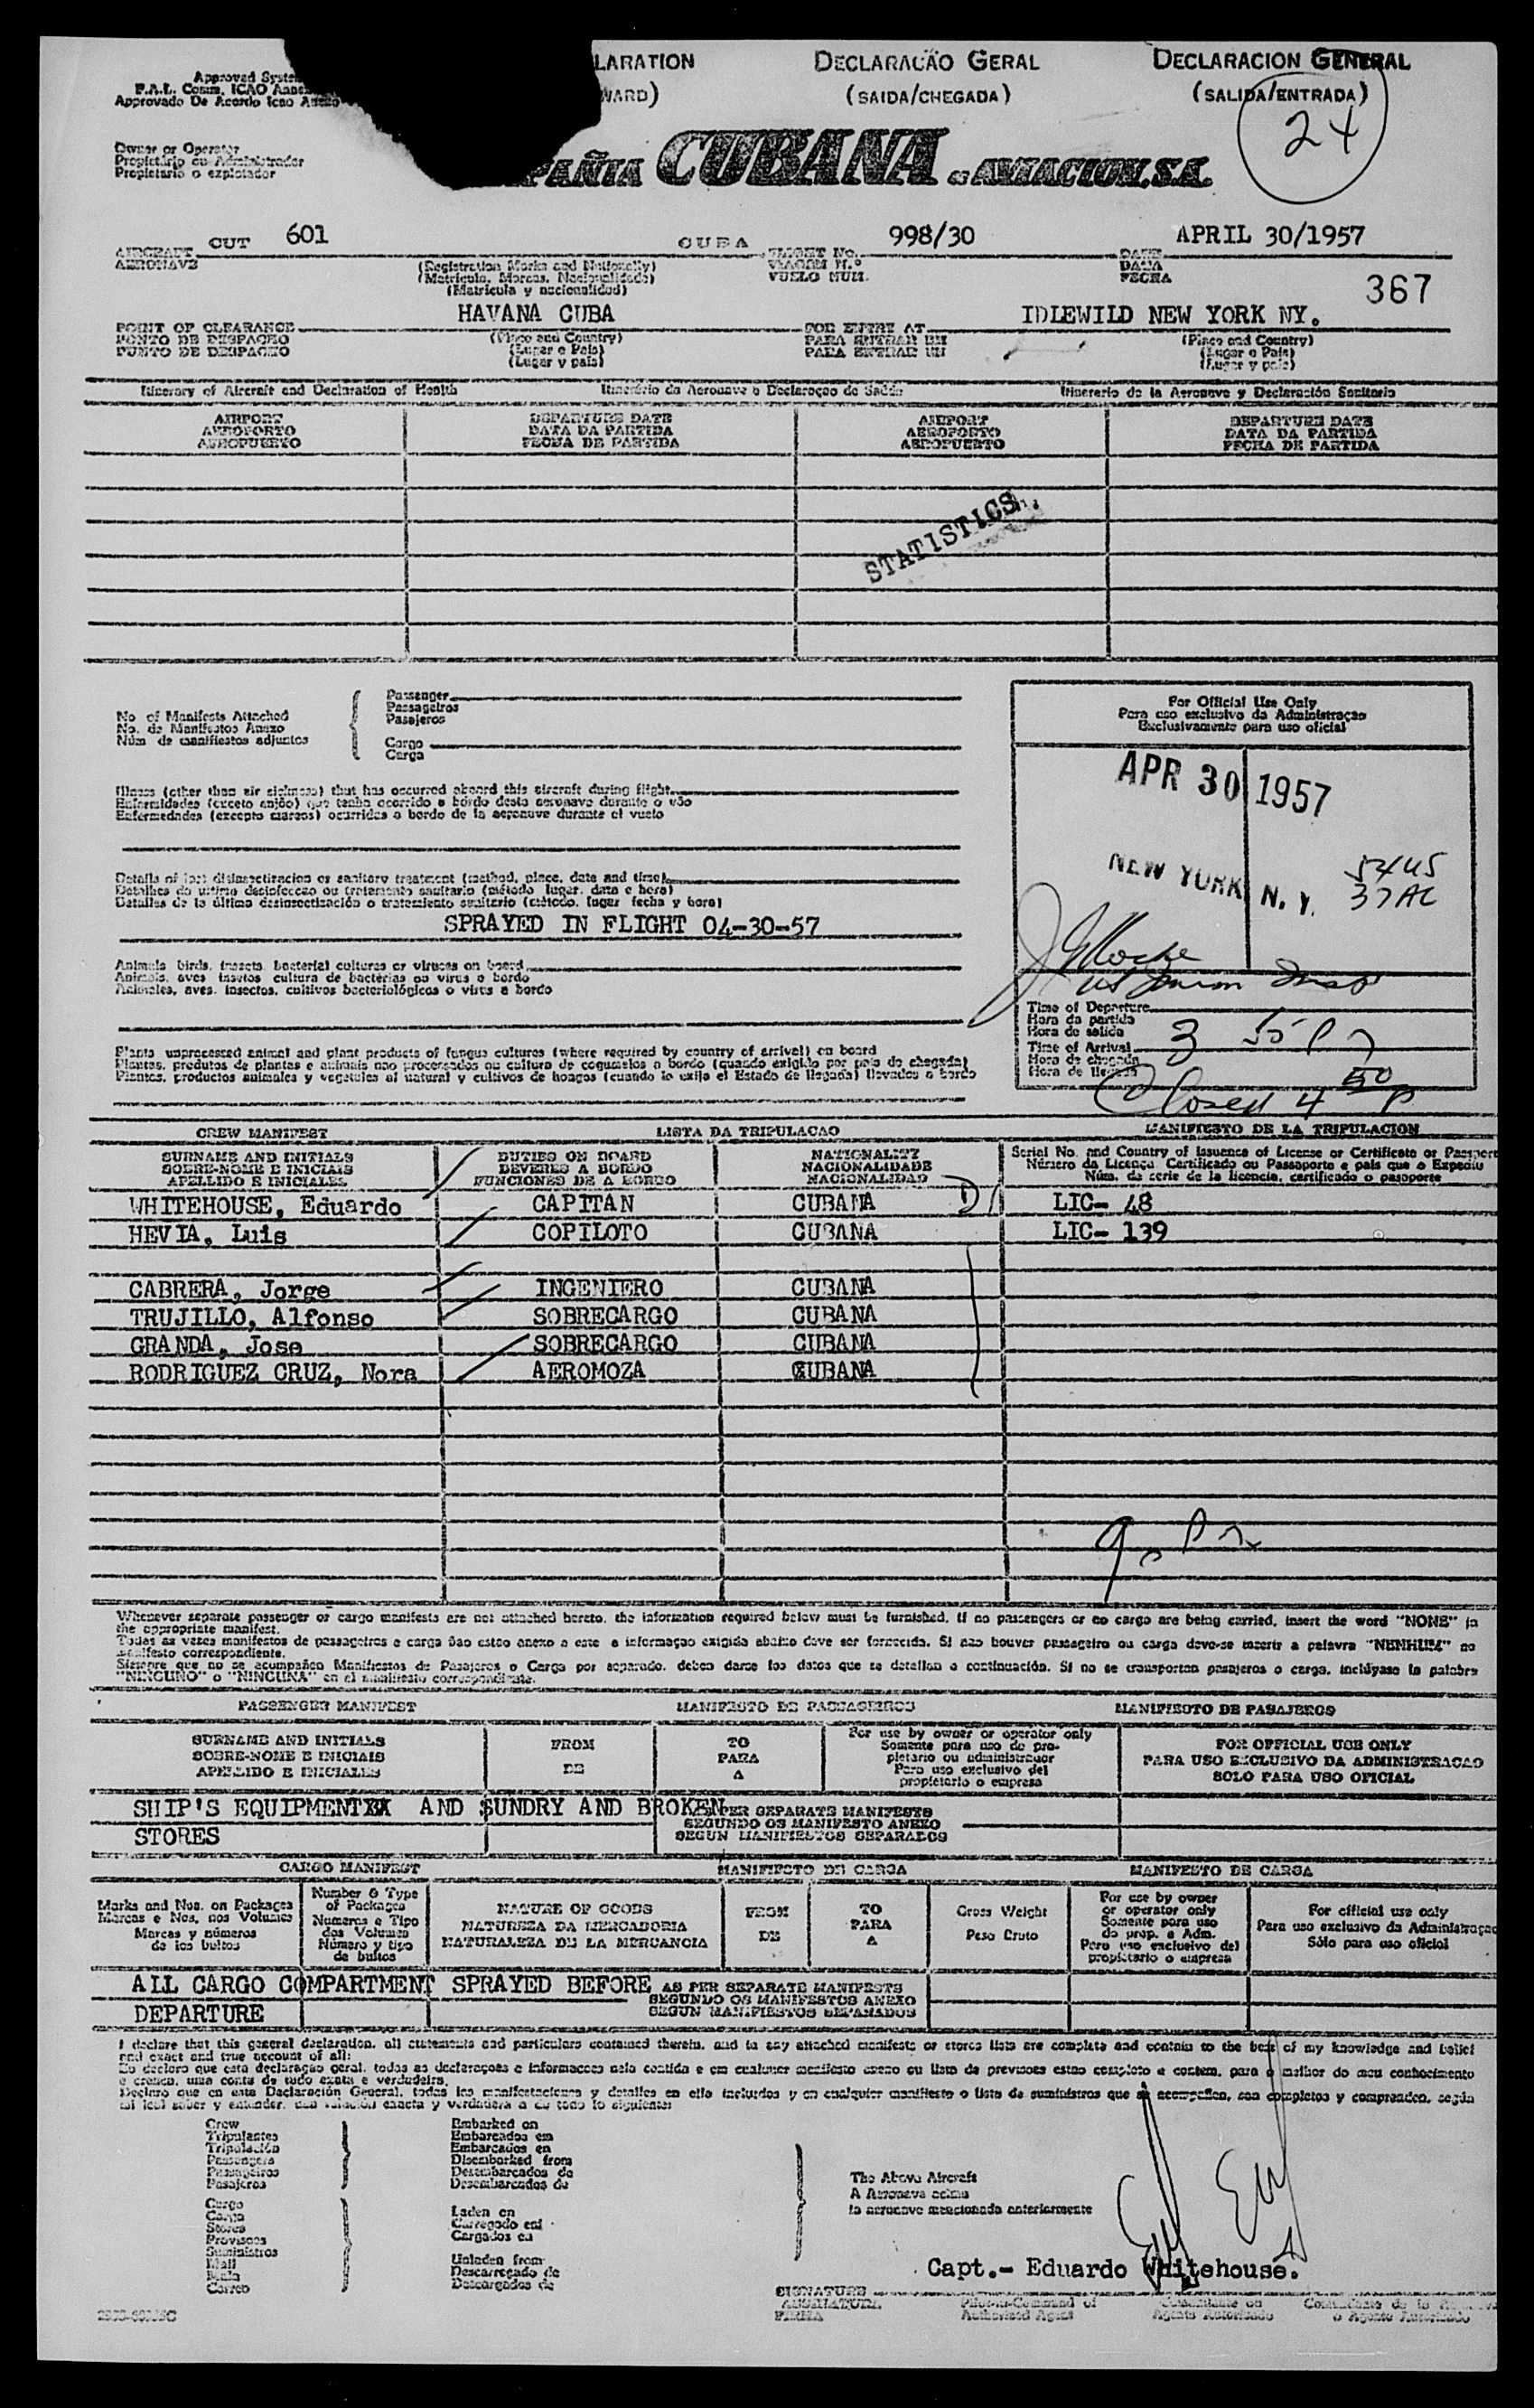 LARATION DECLARAÇÃO GERAL DECLARACION GENERAL
WARD) (SAIDA/CHEGADA) (SALIDA/ENTRADA)
Approved
F.A.L. Comm. ICAO
Approvado De Acordo Icao
24
Owner or Operator
Propietário ou Administrador
Propietario o explotador
PAÑIA CUBANA DE AVIACION, S.A.
AIRCRAFT CUT 601 CUBA FLIGHT No. 998/30 DATE APRIL 30/1957
AERONAVE (Registration Marks and Nationality) VIAGEM N.º DATA
(Matricula, Marcas, Nacionalidade) VUELO NUM. FECHA
(Matrícula y nacionalidad) 367
POINT OF CLEARANCE HAVANA CUBA FOR ENTRY AT IDLEWILD NEW YORK NY.
PONTO DE DESPACHO (Place and Country) PARA ENTRAR EM (Place and Country)
PUNTO DE DESPACHO (Lugar e Pais) PARA ENTRAR EN (Lugar e Pais)
(Lugar y país) (Lugar y país)
Itinerary of Aircraft and Declaration of Health Itinerário da Aeronave e Declaroçao de Saúde Itinerario de la Aeronave y Declaración Sanitaria
AIRPORT DEPARTURE DATE AIRPORT DEPARTURE DATE
AEROPORTO DATA DA PARTIDA AEROPORTO DATA DA PARTIDA
AEROPUERTO FECHA DE PARTIDA AEROPUERTO FECHA DE PARTIDA
STATISTICS
No of Manifests Attached Passenger
No. de Manifestos Anexo Passageiros
Núm de manifiestos adjuntos Pasajeros
Cargo
Carga
For Official Use Only
Para uso exclusivo da Administraçao
Exclusivamente para uso oficial
APR 30 1957
NEW YORK, N. Y.
54US
37AL
Illness (other than air sickness) that has occurred aboard this aircraft during flight
Enfermidades (exceto anjôo) que tenha ocorrido a bordo desta aeronave durante o vôo
Enfermedades (excepto mareos) ocurridas a bordo de la aeronave durante el vuelo
Details of last disinsectization or sanitary treatment (method, place, date and time)
Detalhes do ultimo desinfeccao ou tratamento sanitario (método lugar, data e hora)
Detalles de la última desinsectización o tratamiento sanitario (método, lugar fecha y hora)
SPRAYED IN FLIGHT 04-30-57
Animals birds, insects, bacterial cultures or viruses on board
Animais, aves insetos cultura de bactérias ou virus a bordo
Animales, aves, insectos, cultivos bacteriológicos o virus a bordo
Time of Departure
Hora da partida
Hora de salida
Time of Arrival 3 55 P
Hora de chegada
Hora de llegada
Closed 4 50 P
Plants unprocessed animal and plant products of fungus cultures (where required by country of arrival) on board
Plantas, produtos de plantas e animais nao procensados ou cultura de cogumelos a bordo (quando exigido por pais de chegada)
Plantas, productos animales y vegetales al natural y cultivos de hongos (cuando lo exija el Estado de llegada) llevados a bordo
CREW MANIFEST LISTA DA TRIPULACAO MANIFIESTO DE LA TRIPULACION
SURNAME AND INITIALS DUTIES ON BOARD NATIONALITY Serial No. and Country of Issuance of License or Certificate or Passport
SOBRE-NOME E INICIAIS DEVERES A BORDO NACIONALIDADE Número da Licença, Certificado ou Passaporte e pais que o Expediu
APELLIDO E INICIALES FUNCIONES DE A BORDO NACIONALIDAD Núm. de serie de la licencia, certificado o pasaporte
WHITEHOUSE, Eduardo CAPITAN CUBANA LIC- 48
HEVIA, Luis COPILOTO CUBANA LIC- 139
CABRERA, Jorge INGENIERO CUBANA
TRUJILLO, Alfonso SOBRECARGO CUBANA
GRANDA, Jose SOBRECARGO CUBANA
RODRIGUEZ CRUZ, Nora AEROMOZA CUBANA
Whenever separate passenger or cargo manifests are not attached hereto, the information required below must be furnished. If no passengers or no cargo are being carried, insert the word "NONE" in
the appropriate manifest.
Todas as vezes manifestos de passageiros e carga nao estao anexo a este a informaçao exigida abaixo deve ser fornecida. Si nao houver passageiro ou carga deve-se inserir a palavra "NENHUM" no
manifesto correspondiente.
Siempre que no se acompañen Manifiestos de Pasajeros o Carga por separado, deben darse los datos que se detallan a continuación. Si no se transportan pasajeros o carga, inclúyase la palabra
"NINGUNO" o "NINGUNA" en el manifiesto correspondiente.
PASSENGER MANIFEST MANIFESTO DE PASSAGEIROS MANIFIESTO DE PASAJEROS
SURNAME AND INITIALS FROM TO For use by owner or operator only FOR OFFICIAL USE ONLY
SOBRE-NOME E INICIAIS DE PARA Somente para uso do pro- PARA USO EXCLUSIVO DA ADMINISTRACAO
APELLIDO E INICIALES A pietario ou administrador SOLO PARA USO OFICIAL
Para uso exclusivo del
propietario o empresa
SHIP'S EQUIPMENT AND SUNDRY AND BROKEN PER SEPARATE MANIFESTS
STORES SEGUNDO OS MANIFESTO ANEXO
SEGUN MANIFIESTOS SEPARADOS
CARGO MANIFEST MANIFIESTO DE CARGA MANIFESTO DE CARGA
Marks and Nos. on Packages Number & Type of Packages NATURE OF GOODS FROM TO Gross Weight For use by owner or operator only For official use only
Marcas e Nos. nos Volumes Numeros e Tipo dos Volumes NATUREZA DA MERCADORIA DE PARA Peso Bruto Somente para uso do prop. e Adm. Para uso exclusivo da Administraçao
Marcas y números de los bultos Número y tipo de bultos NATURALEZA DE LA MERCANCIA A Para uso exclusivo del propietario o empresa Sólo para uso oficial
ALL CARGO COMPARTMENT SPRAYED BEFORE AS PER SEPARATE MANIFESTS
DEPARTURE SEGUNDO OS MANIFESTOS ANEXO
SEGUN MANIFIESTOS SEPARADOS
I declare that this general declaration, all statements and particulars contained therein, and in any attached manifests or stores lists are complete and contain to the best of my knowledge and belief
and exact and true account of all:
Eu declaro que esta declaraçao geral, todas as declaraçoes e informacoes nela contida e em qualquer manifesto anexo ou lista de previsoes estao completo e contem, para o melhor do meu conhecimento
e crenca, uma conta de tudo exata e verdadeira.
Declaro que en esta Declaración General, todas las manifestaciones y detalles en ella incluidos y en cualquier manifiesto o lista de suministros que se acompañen, son completos y comprenden, según
mi leal saber y entender, una relación exacta y verdadera a de todo lo siguiente:
Crew Embarked on
Tripulantes Embarcados em
Tripulación Embarcados en
Passengers Disembarked from
Passageiros Desembarcados de
Pasajeros Desembarcados de
The Above Aircraft
A Aeronave acima
la aeronave mencionada anteriormente
Cargo Laden on
Carga Carregado em
Stores Cargados en
Provisoes
Suministros
Mail Unladen from
Mala Descarregado de
Correo Descargados de
Capt.- Eduardo Whitehouse.
SIGNATURE Pilot-in-Command of Comandante ou Comandante de la
ASSINATURA Authorized Agent Agente Autorizado o Agente Autorizado
FIRMA